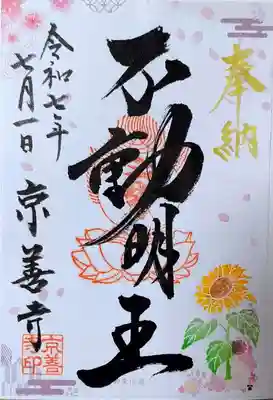 奉納
不動明王
令和七年
七月一日
京善寺
京善
寺印